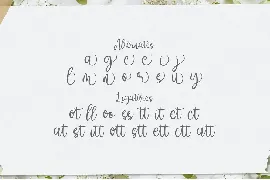 Alternates
a g c e i j
l m n o r s u y
Ligatures
ot ll oo ss tt it et ct
at st ut ott stt ett ctt utt